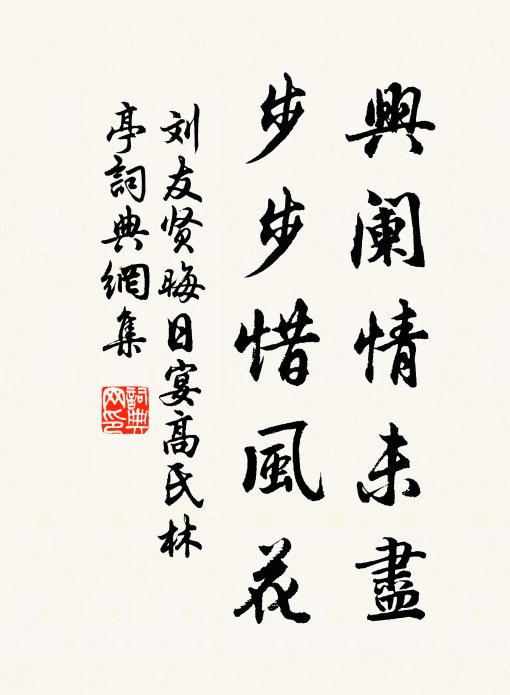 興阑情未盡
步步惜風花
刘友贤晦日宴高氏林
亭詞典網集
詞典網印